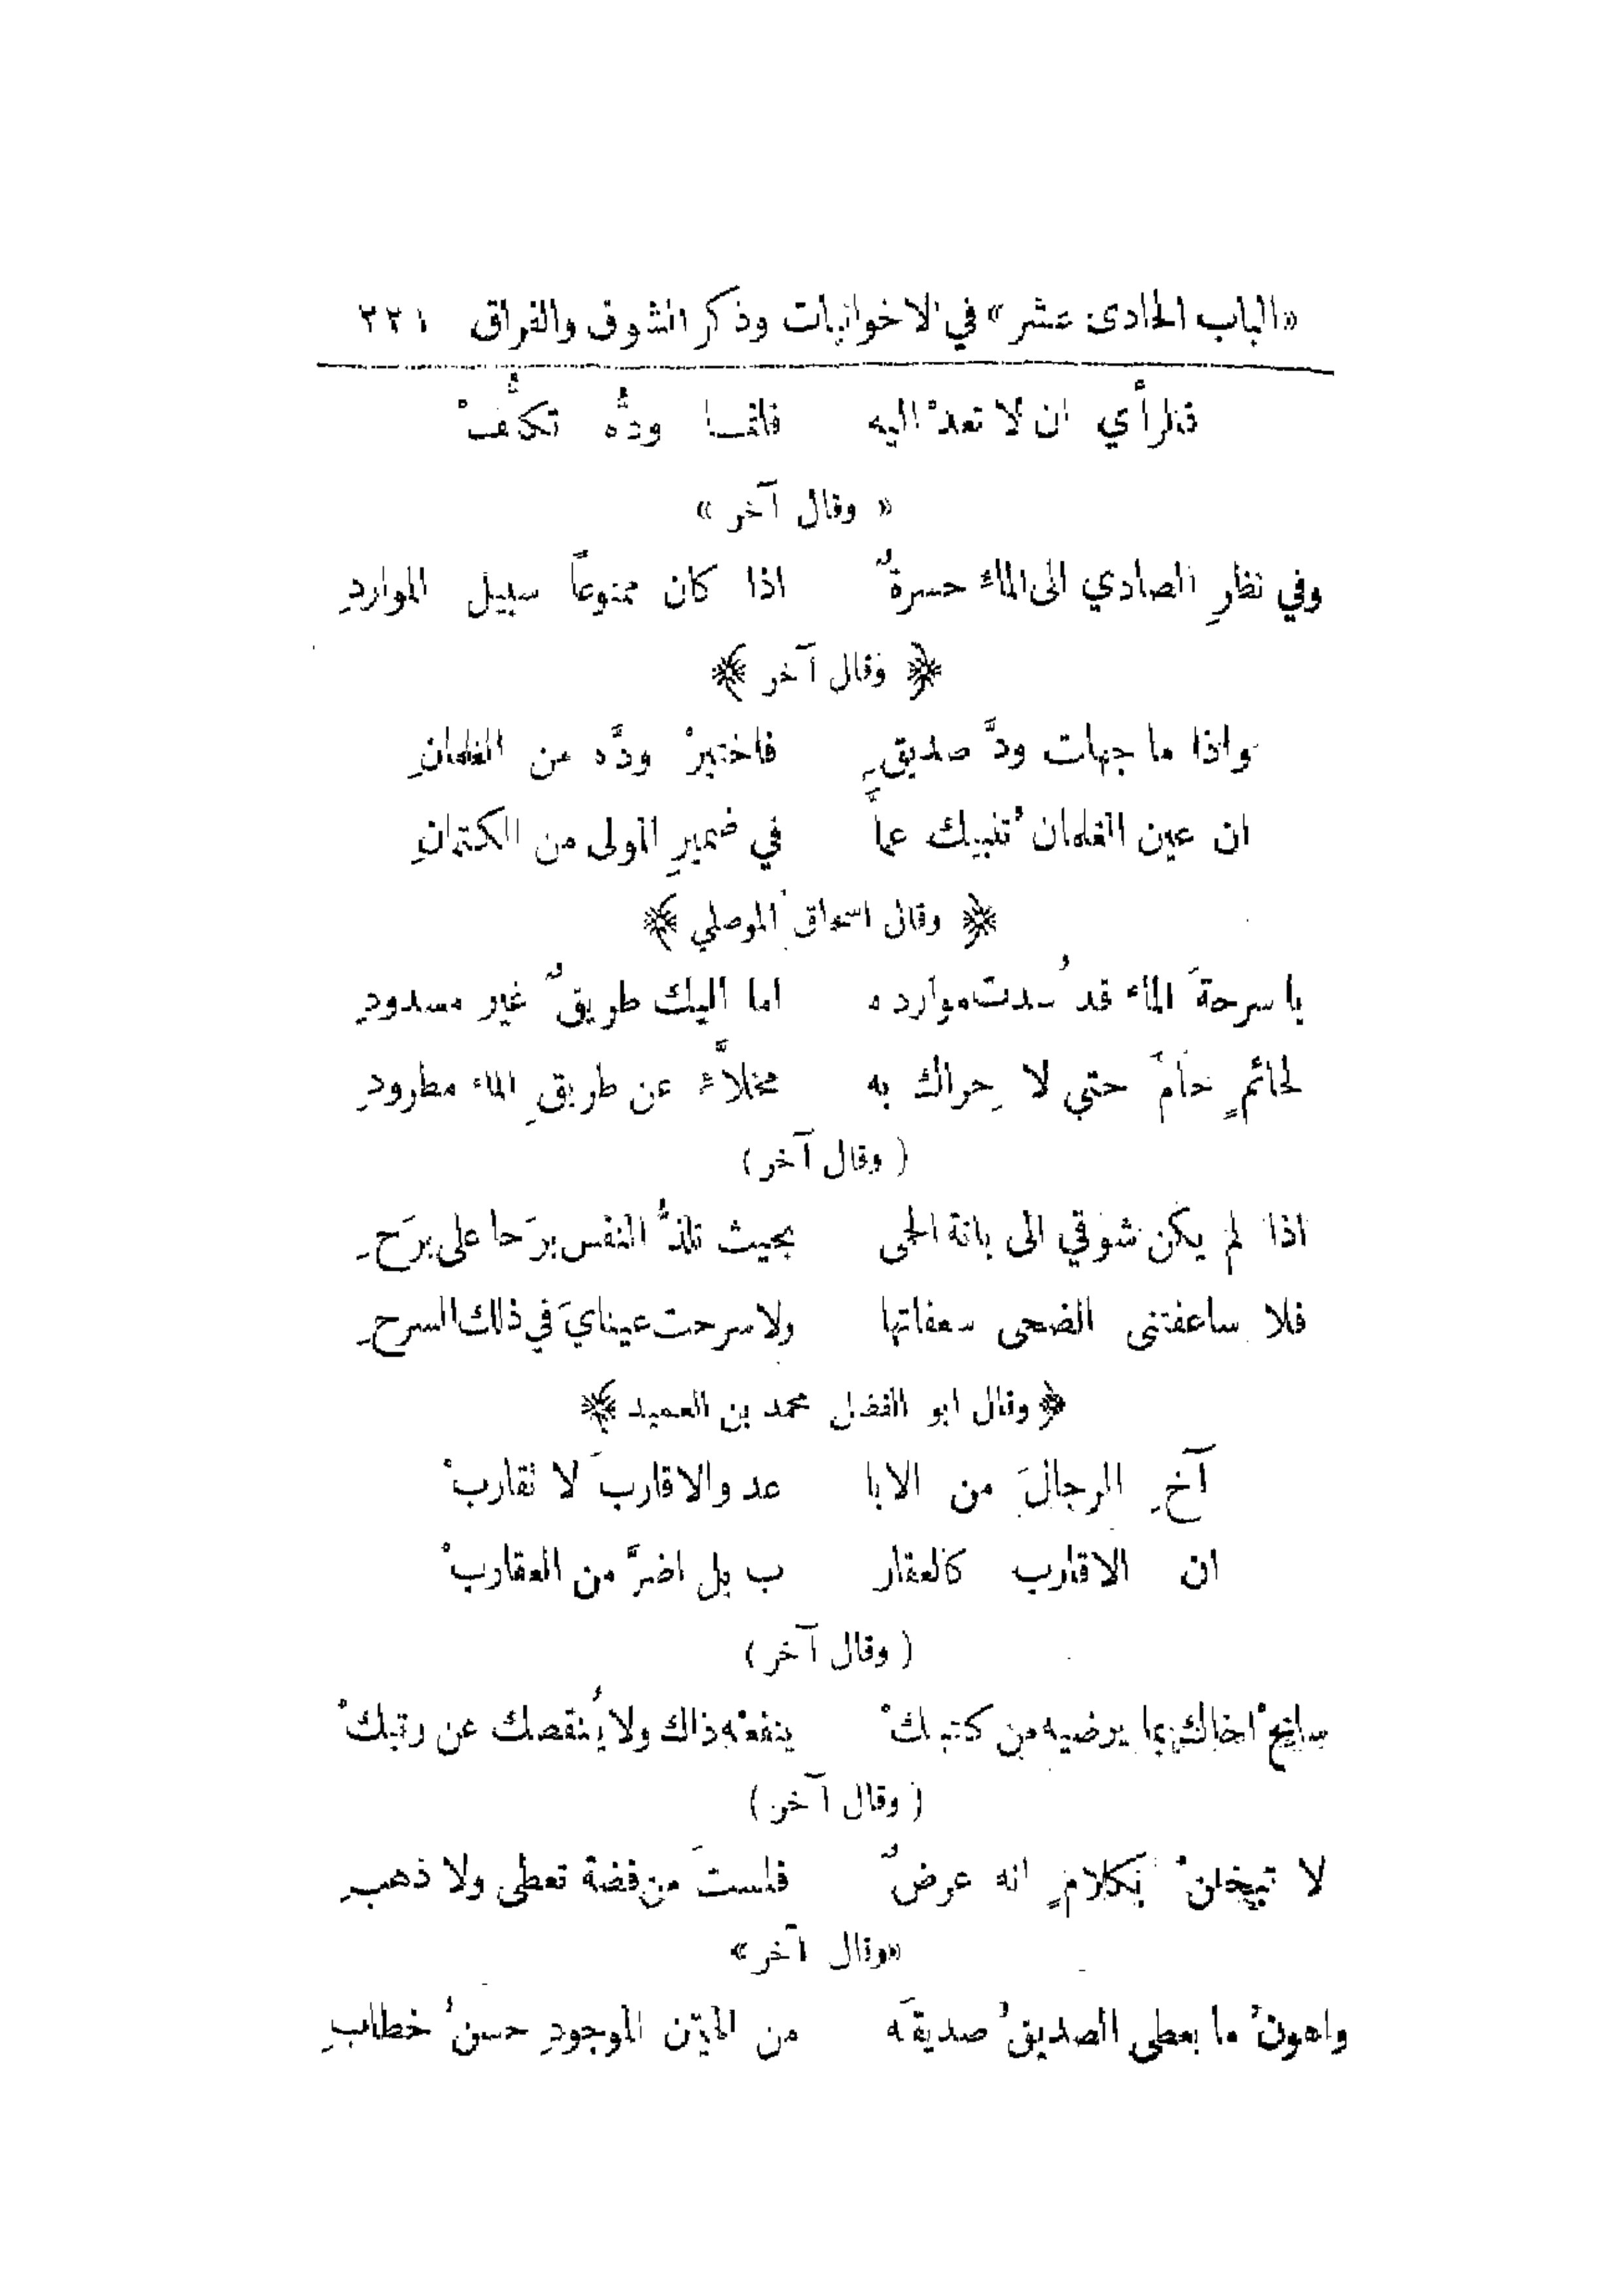 «الباب الحادي عشر» في الاخوانيات وذكر الشوق والفراق ٢٢١
فالرأي ان لا تعدْ اليه فلقــا ودُّه تكلُّفْ
« وقال آخر »
وفي نظرِ الصادي الى الماء حسرةٌ اذا كان ممنوعاً سبيل المواردِ
﴿ وقال آخر ﴾
واذا ما جهلت ودَّ صديقٍ فاختبرْ ودَّه من الغلمانِ
ان عين الغلمان تُنبيك عماَّ في ضميرِ المولى من الكتمانِ
﴿ وقال اسحاق الموصلي ﴾
يا سرحةَ الماء قد سُدت موارده اما اليك طريقٌ غير مسدودِ
لحائمٍ حامَ حتى لا حِراك به محلَّاءٍ عن طريقِ الماء مطرودِ
( وقال آخر )
اذا لم يكن شوقي الى بانة الحمى بحيث تلذُّ النفس برَحا على برَحِ
فلا ساعفتنى الضحى سعفاتها ولا سرحت عينايَ في ذلك السرحِ
﴿ وقال ابو الفضل محمد بن العميد ﴾
آخِ الرجالَ من الابا عد والاقاربَ لا تقاربْ
ان الاقارب كالعقار ب بل اضرَّ من العقاربْ
( وقال آخر )
سامحْ اخاك بما يرضيه من كتبكْ ينفعْه ذاك ولا يُنقصك عن رتبكْ
( وقال آخر )
لا تبخلنْ بكلامٍ انه عرضٌ فلستَ من فضة تعطى ولا ذهبِ
«وقال آخر»
واهونُ ما يعطى الصديقُ صديقَه من الهيّن الموجودِ حسنُ خطابِ